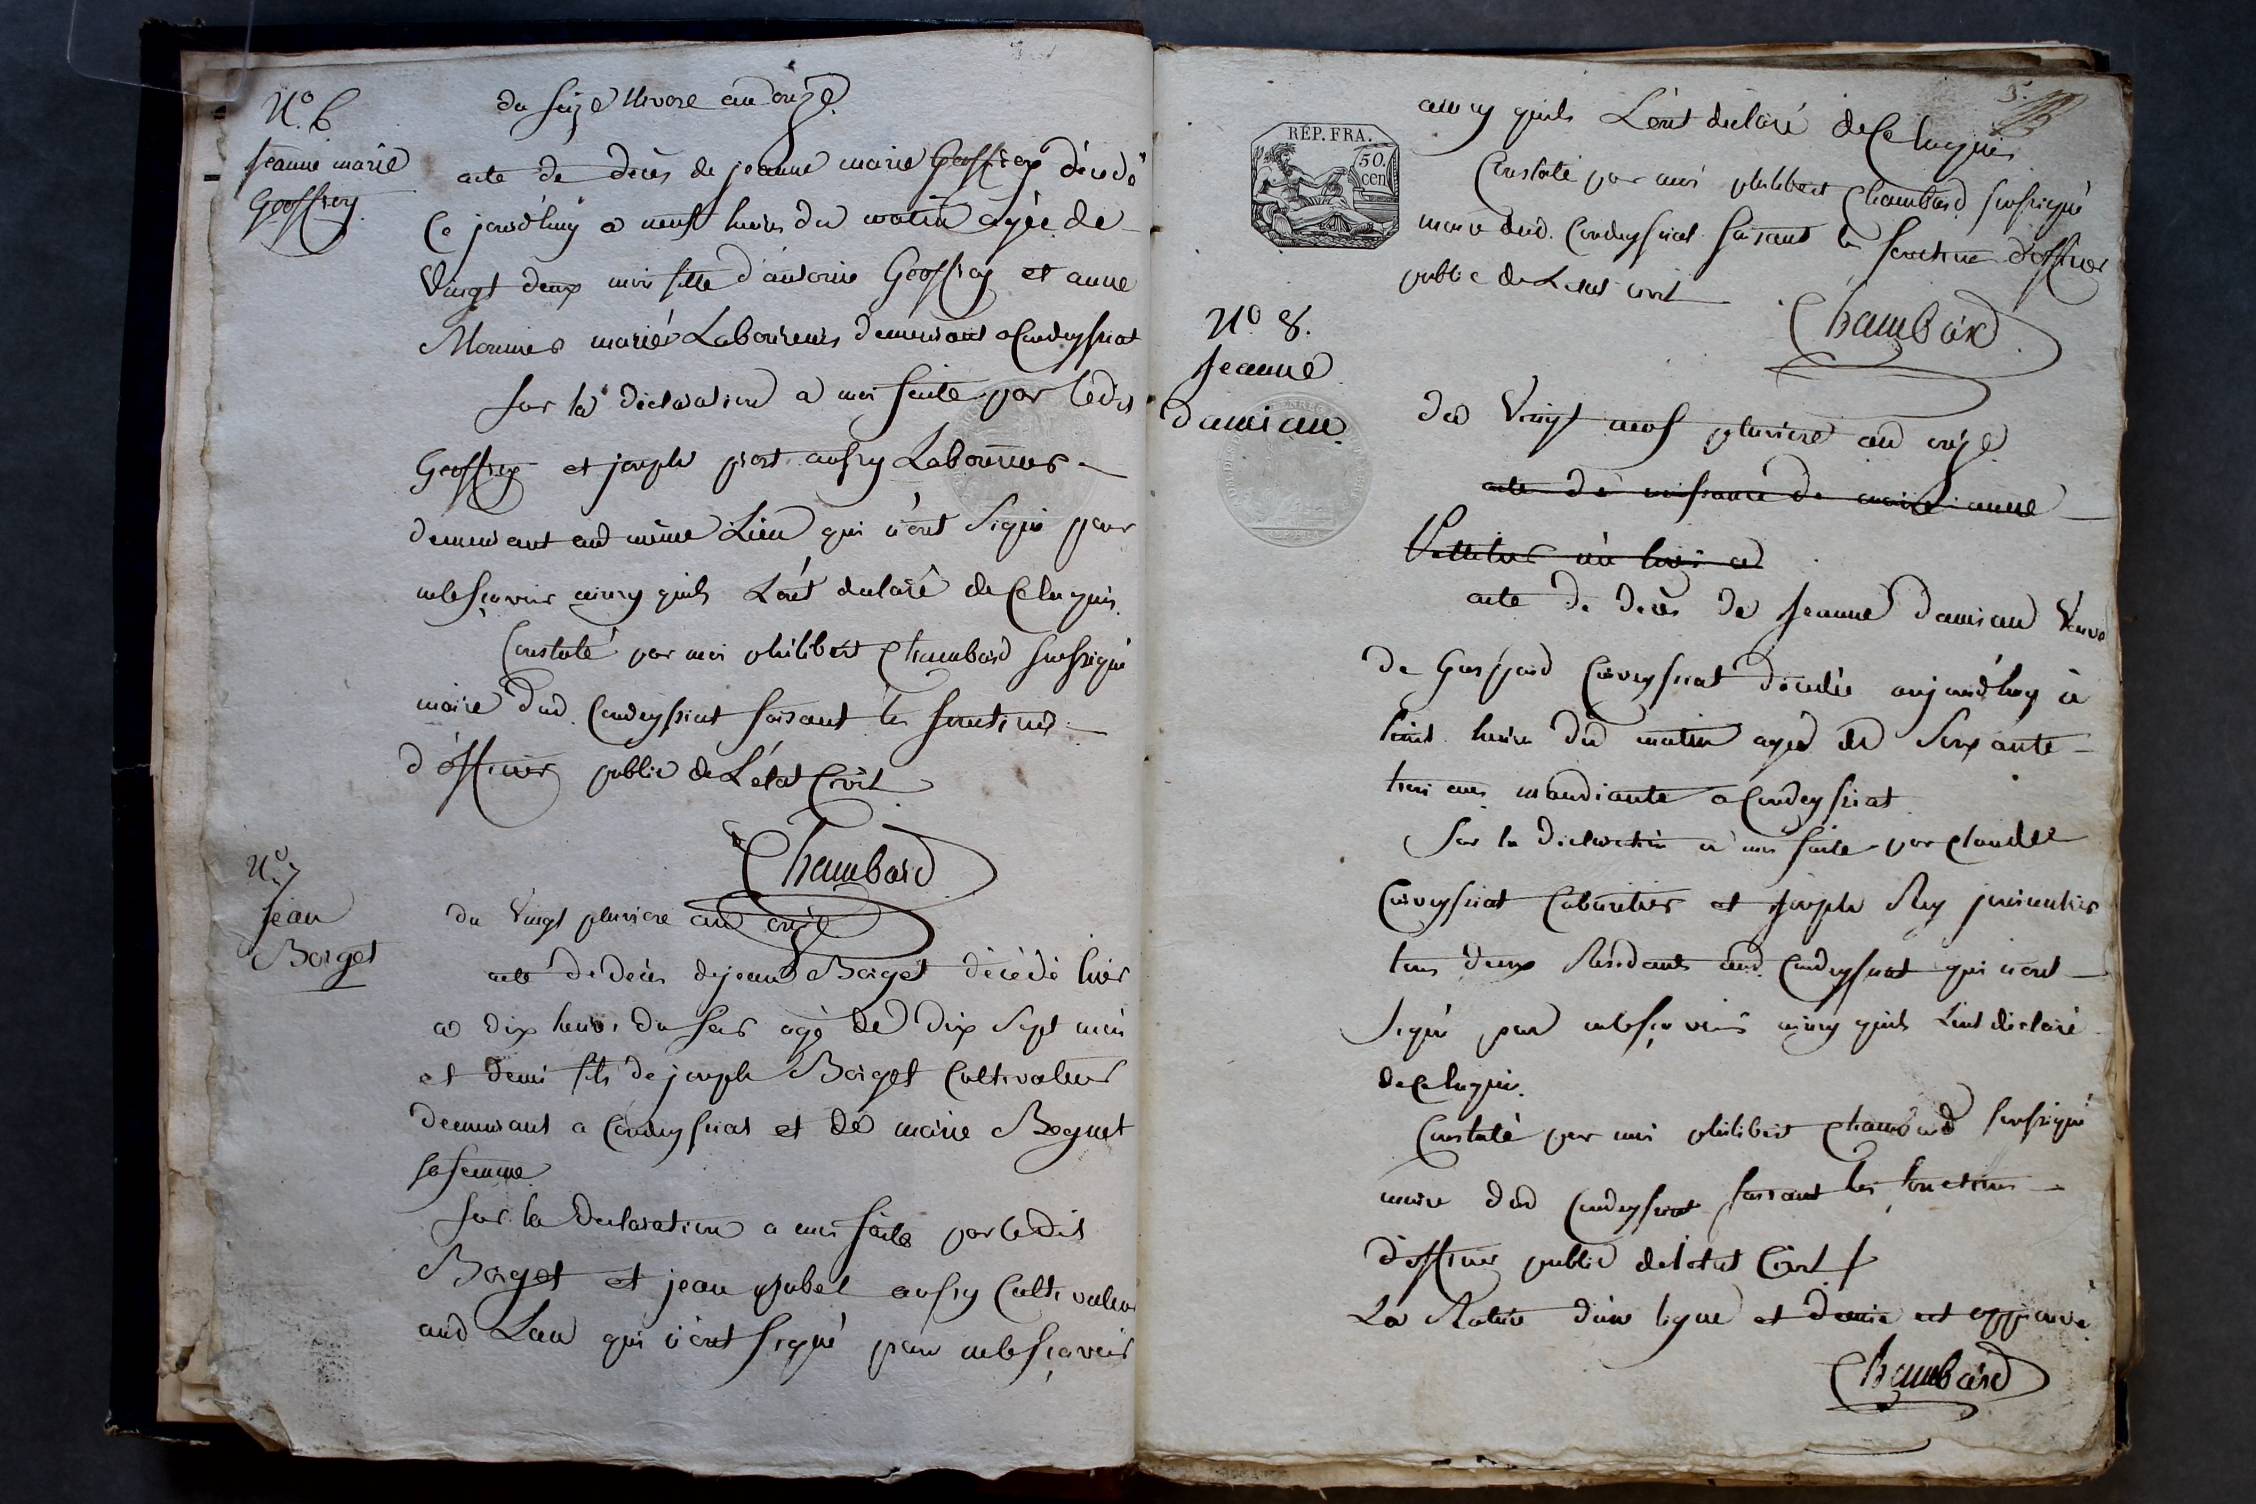 N.o 6
jeanne marie
Geoffray
du seize Nivose an onze
acte de décès de jeanne marie Geoffray décédé
ce jourd'huy a neuf heures du matin agée de
Vingt deux mois fille d'antoine Geoffray et anne
mariés Laboureurs demeurant a Condeyssiat
sur la déclaration a moi faite par ledit
Geoffray et joseph aussy Laboureurs
demeurant aud même Lieu qui n'ont signé pour
ne le sçavoir ainsy quils L'ont declaré de Ce Enquis
Constaté par moi philibert Chambard soussigné
maire dud. Condeyssiat faisant les fonctions
d'officier public de L'état Civil
Chambard
N.o 7
jean
Borget
du Vingt pluviose an onze
acte de décès de jean Borget décédé hier
a dix heures du soir agé de dix Sept mois
et demi fils de joseph Borget Cultivateur
demeurant a Condeyssiat et de marie Boguet
sa femme
sur la declaration a moi faite par ledit
Borget et jean aussy Cultivateur
aud Lieu qui n'ont signé pour ne le sçavoir
5.
RÉP. FRA.
50.
cen
ainsy quils L'ont declaré de Ce Enquis
Constaté par moi philibert Chambard soussigné
maire dud. Condeyssiat faisant les fonctions d'officier
public de L'etat civil
Chambard
N.o 8.
Jeanne
damian
du Vingt neuf pluviose an onze
acte de naissance de marie anne
née hier a
acte de décès de Jeanne damian Veuve
de Gaspard Corveyssiat décédée aujourd'huy à
huit heures du matin agée de Soixante
trois ans mandiante a Condeyssiat
Sur la declaration a moi faite par Claude
Corveyssiat Cabaretier et joseph Rey
tous deux Résidants aud. Condeyssiat qui n'ont
signé pour ne le sçavoir ainsy quils L'ont déclaré
de Ce Enquis.
Constaté par moi philibert Chambard soussigné
maire dud Condeyssiat faisant les fonctions
d'officier public de l'état Civil
La Rature d'une ligne et demie est approuvé
Chambard